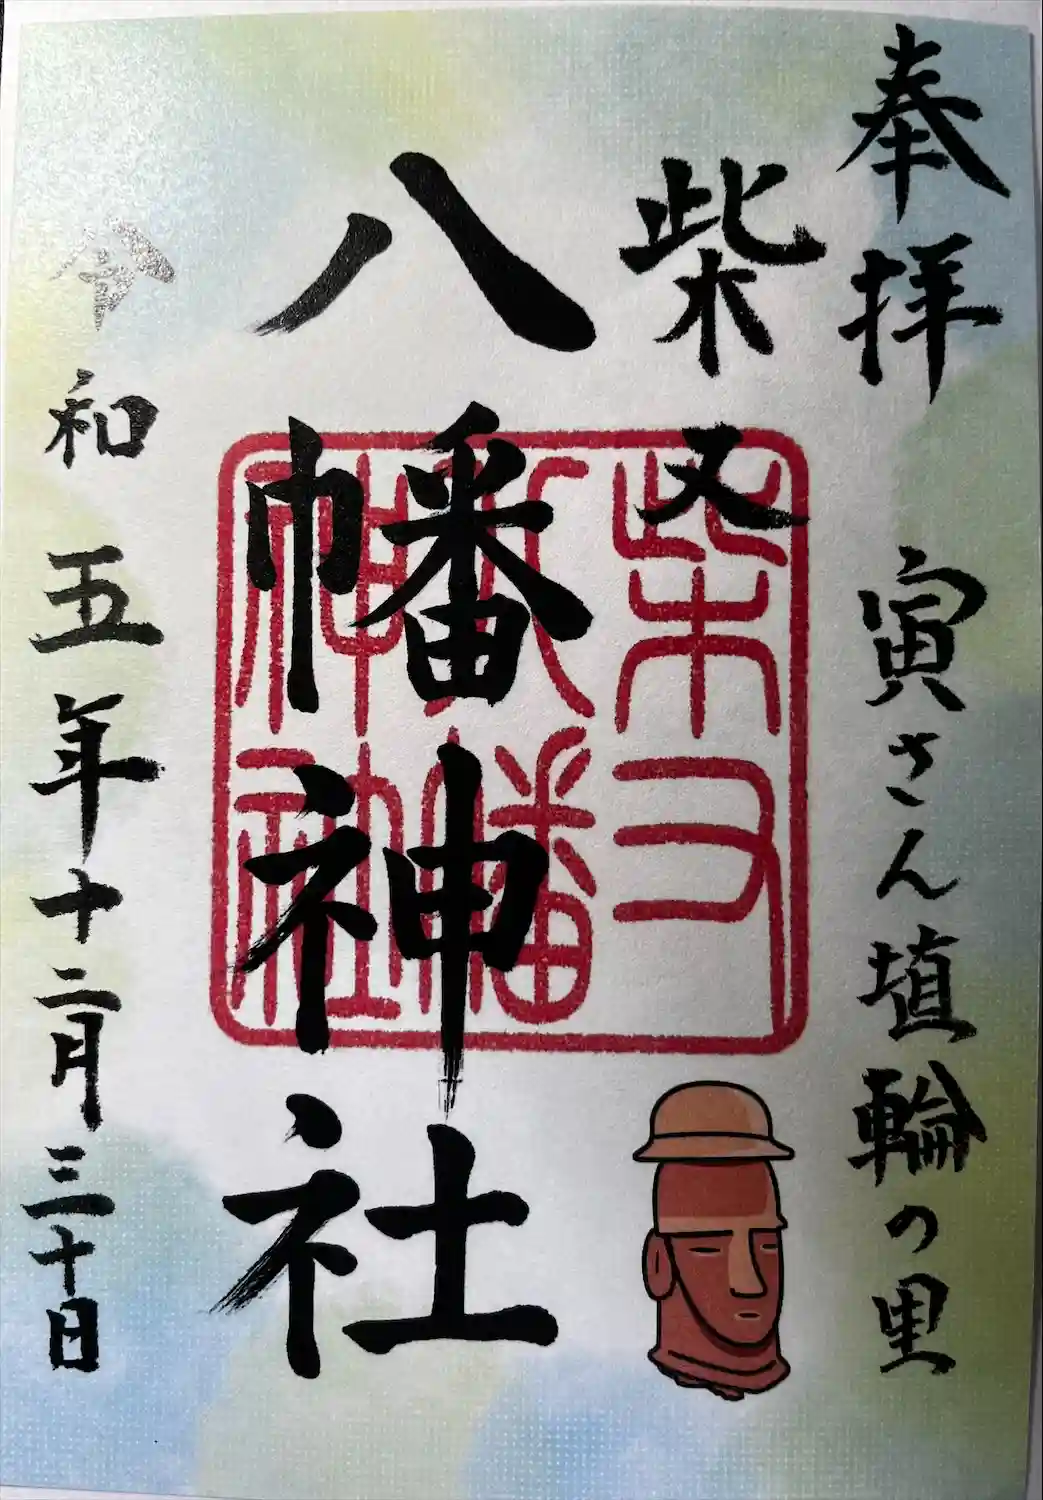 奉拝 寅さん埴輪の里
柴又
八幡神社
令和五年十二月三十日
柴又
八幡
神社